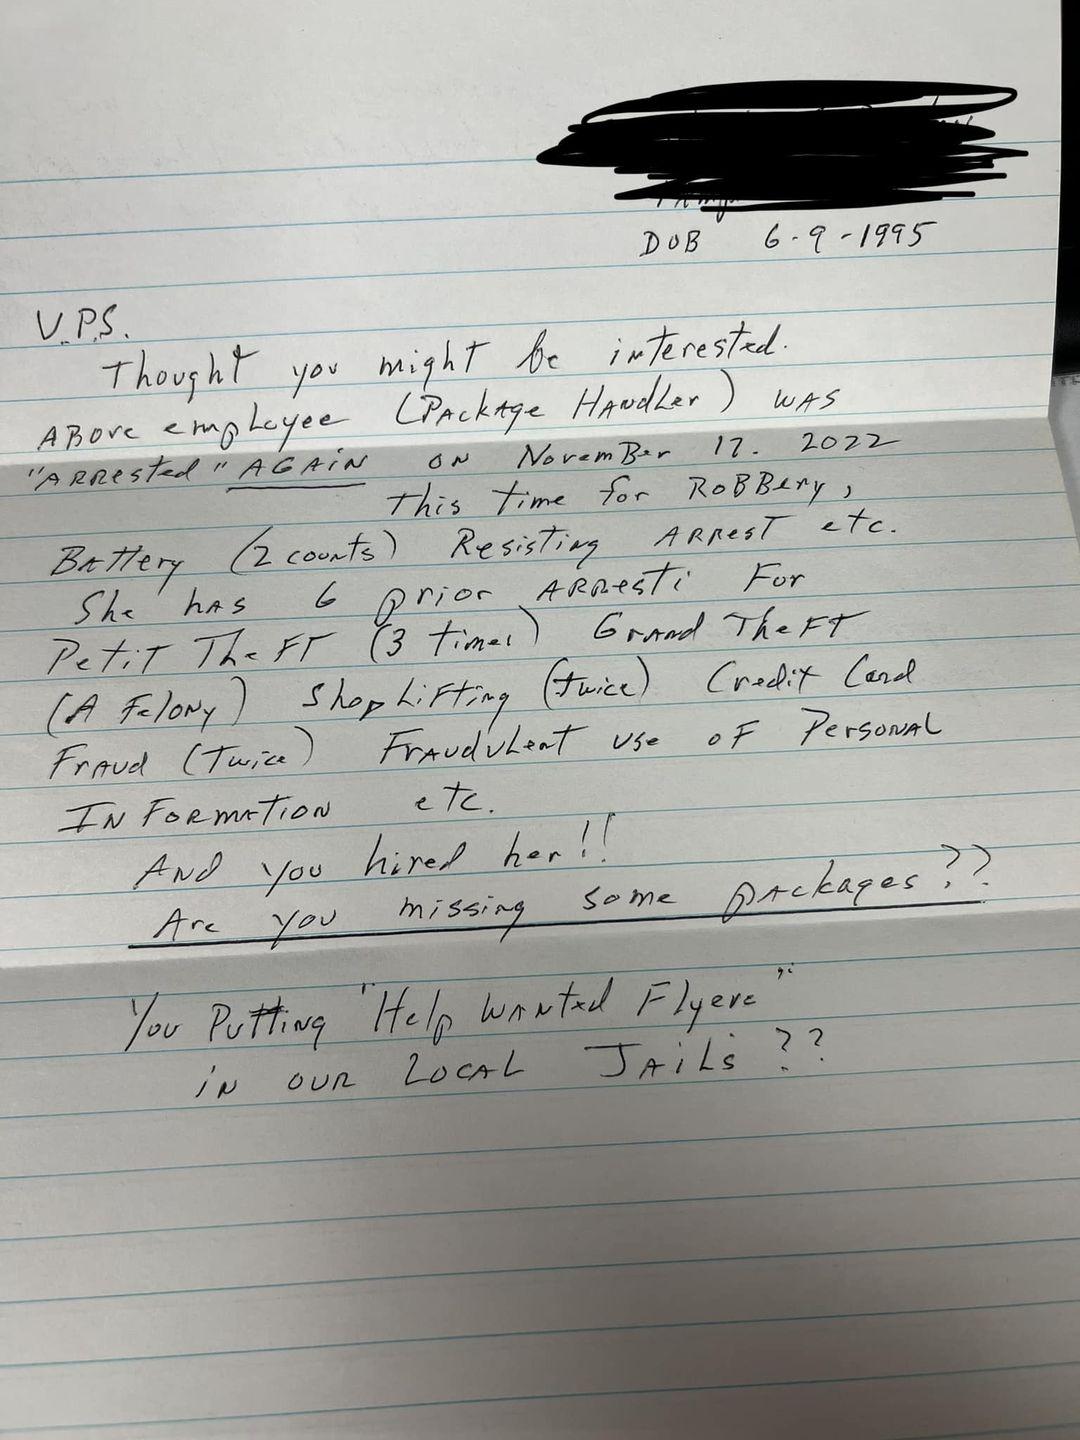 DOB 6-9-1995
U.P.S.
Thought you might be interested.
Above employee (Package Handler) was
"Arrested" AGAIN on November 17. 2022
This time for Robbery,
Battery (2 counts) Resisting Arrest etc.
She has 6 prior arrests for
Petit Theft (3 times) Grand Theft
(A Felony) Shoplifting (twice) Credit Card
Fraud (Twice) Fraudulent use of Personal
Information etc.
And you hired her!!
Are you missing some packages??
You Putting "Help Wanted Flyers"
in our local Jails??